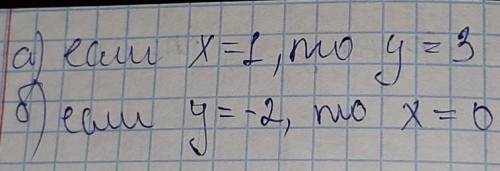 а) если x=1, то y=3
б) если y=-2, то x=0